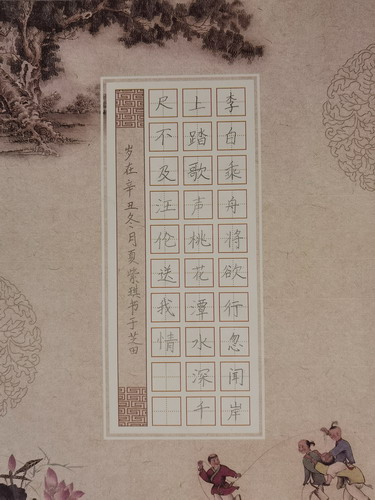 李白乘舟将欲行忽闻岸
上踏歌声桃花潭水深千
尺不及汪伦送我情
岁在辛丑冬月夏紫琪书于芝田